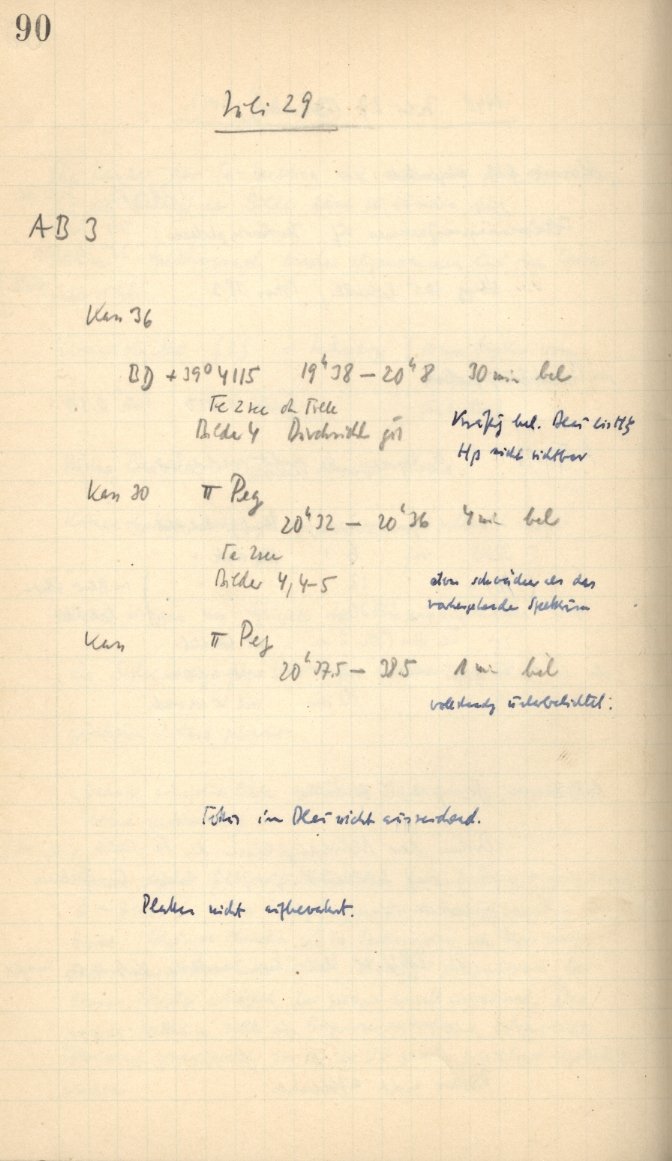 90
Juli 29
AB 3
Kas 36
BD +39° 4115 19ʰ38 – 20ʰ8 30 min bel
Fe 2sec
Bilder 4 Durchsicht gut
Kräftig bel. Blau bis Hδ
Hβ nicht sichtbar
Kas 30 π Peg
20ʰ32 – 20ʰ36 4 min bel
Fe 2sec
Bilder 4, 4–5
etwas schwächer als das
vorhergehende Spektrum
Kas π Peg
20ʰ37.5 – 38.5 1 min bel
vollständig unterbelichtet.
Fokus im Blau nicht ausreichend.
Platten nicht aufbewahrt.